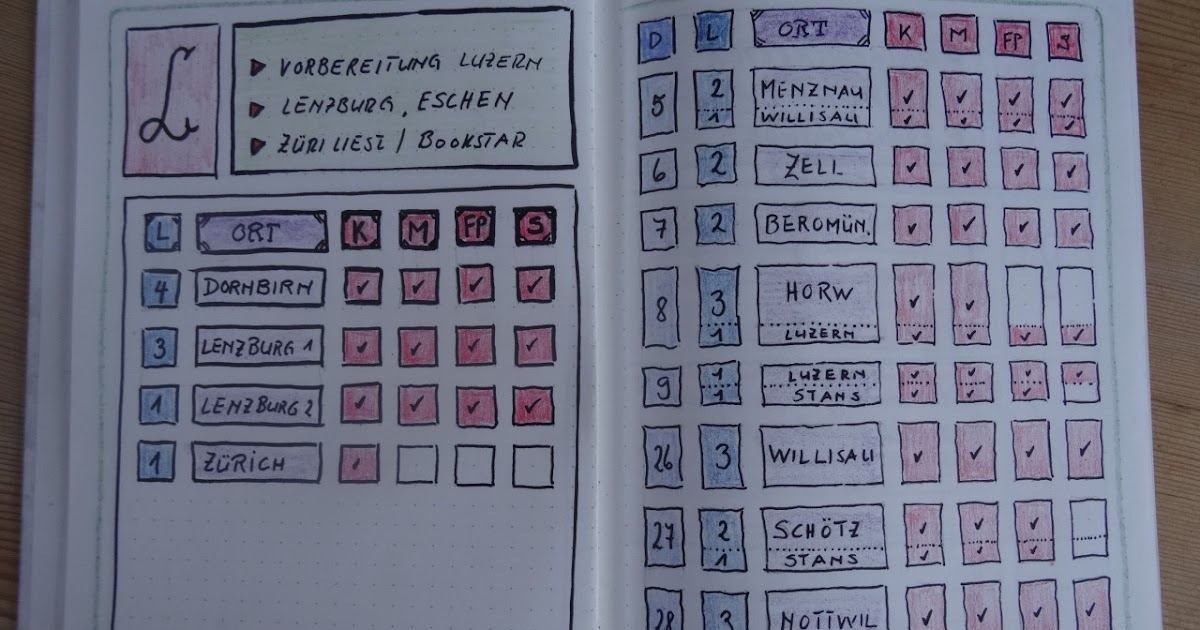 L
VORBEREITUNG LUZERN
LENZBURG, ESCHEN
ZÜRI LIEST / BOOKSTAR
L ORT K M FP S
4 DORNBIRN ✓ ✓ ✓ ✓
3 LENZBURG 1 ✓ ✓ ✓ ✓
1 LENZBURG 2 ✓ ✓ ✓ ✓
1 ZÜRICH ✓
D L ORT K M FP S
5 2 MENZNAU ✓ ✓ ✓ ✓
1 WILLISAU ✓ ✓ ✓ ✓
6 2 ZELL ✓ ✓ ✓ ✓
7 2 BEROMÜN. ✓ ✓ ✓ ✓
8 3 HORW ✓ ✓
1 LUZERN ✓ ✓ ✓ ✓
9 1 LUZERN ✓ ✓ ✓ ✓
1 STANS ✓ ✓ ✓
26 3 WILLISAU ✓ ✓ ✓ ✓
27 2 SCHÖTZ ✓ ✓ ✓
1 STANS ✓ ✓ ✓
28 3 NOTTWIL ✓ ✓ ✓ ✓